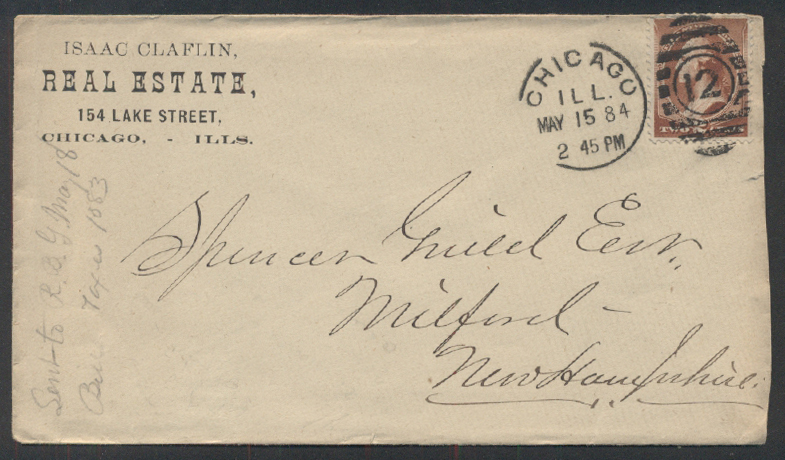 ISAAC CLAFLIN,
REAL ESTATE,
154 LAKE STREET,
CHICAGO, - ILLS.
CHICAGO
ILL.
MAY 15 84
2 45 PM
12
TWO
Spencer Guild Esq.
Milford
New Hampshire.
Sent to R. B. G. May 18
Taxes 1883